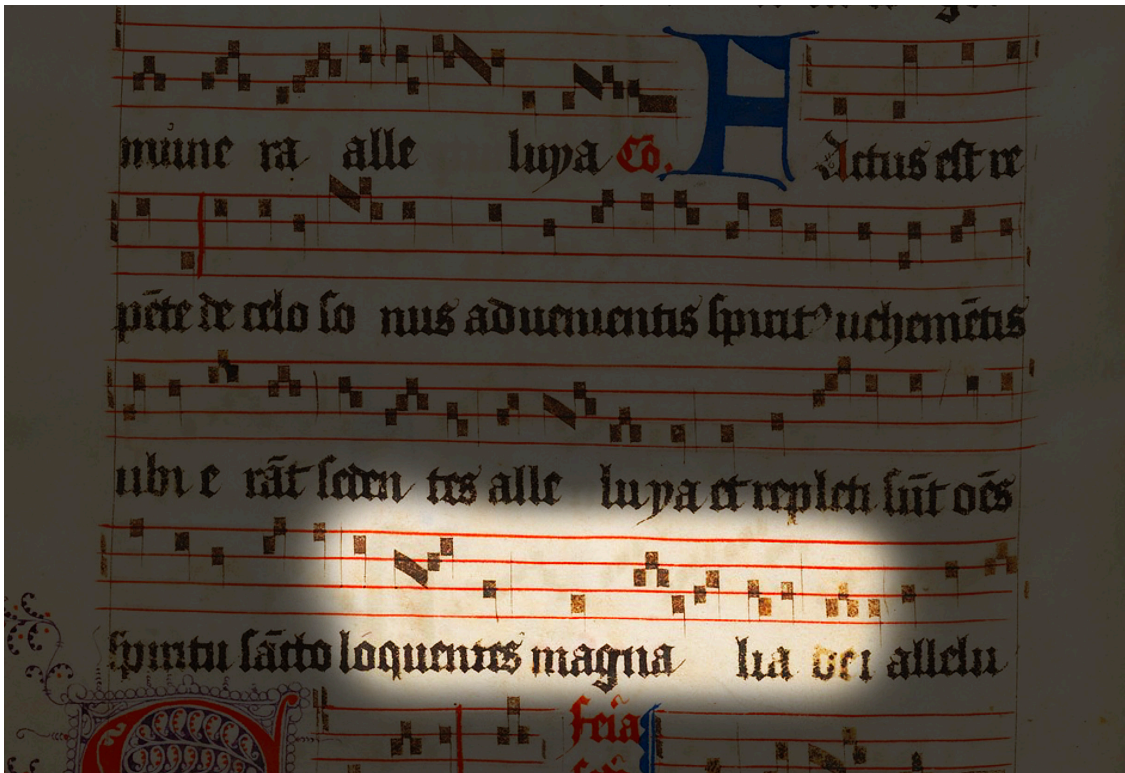 mune ra alle luya Cō. F Actus est re
pēte de celo so nus aduenientis spirit⁹ uehemētis
ubi e rāt seden tes alle luya et repleti sūt oēs
spiritu sācto loquentes magna lia dei allelu
feīa